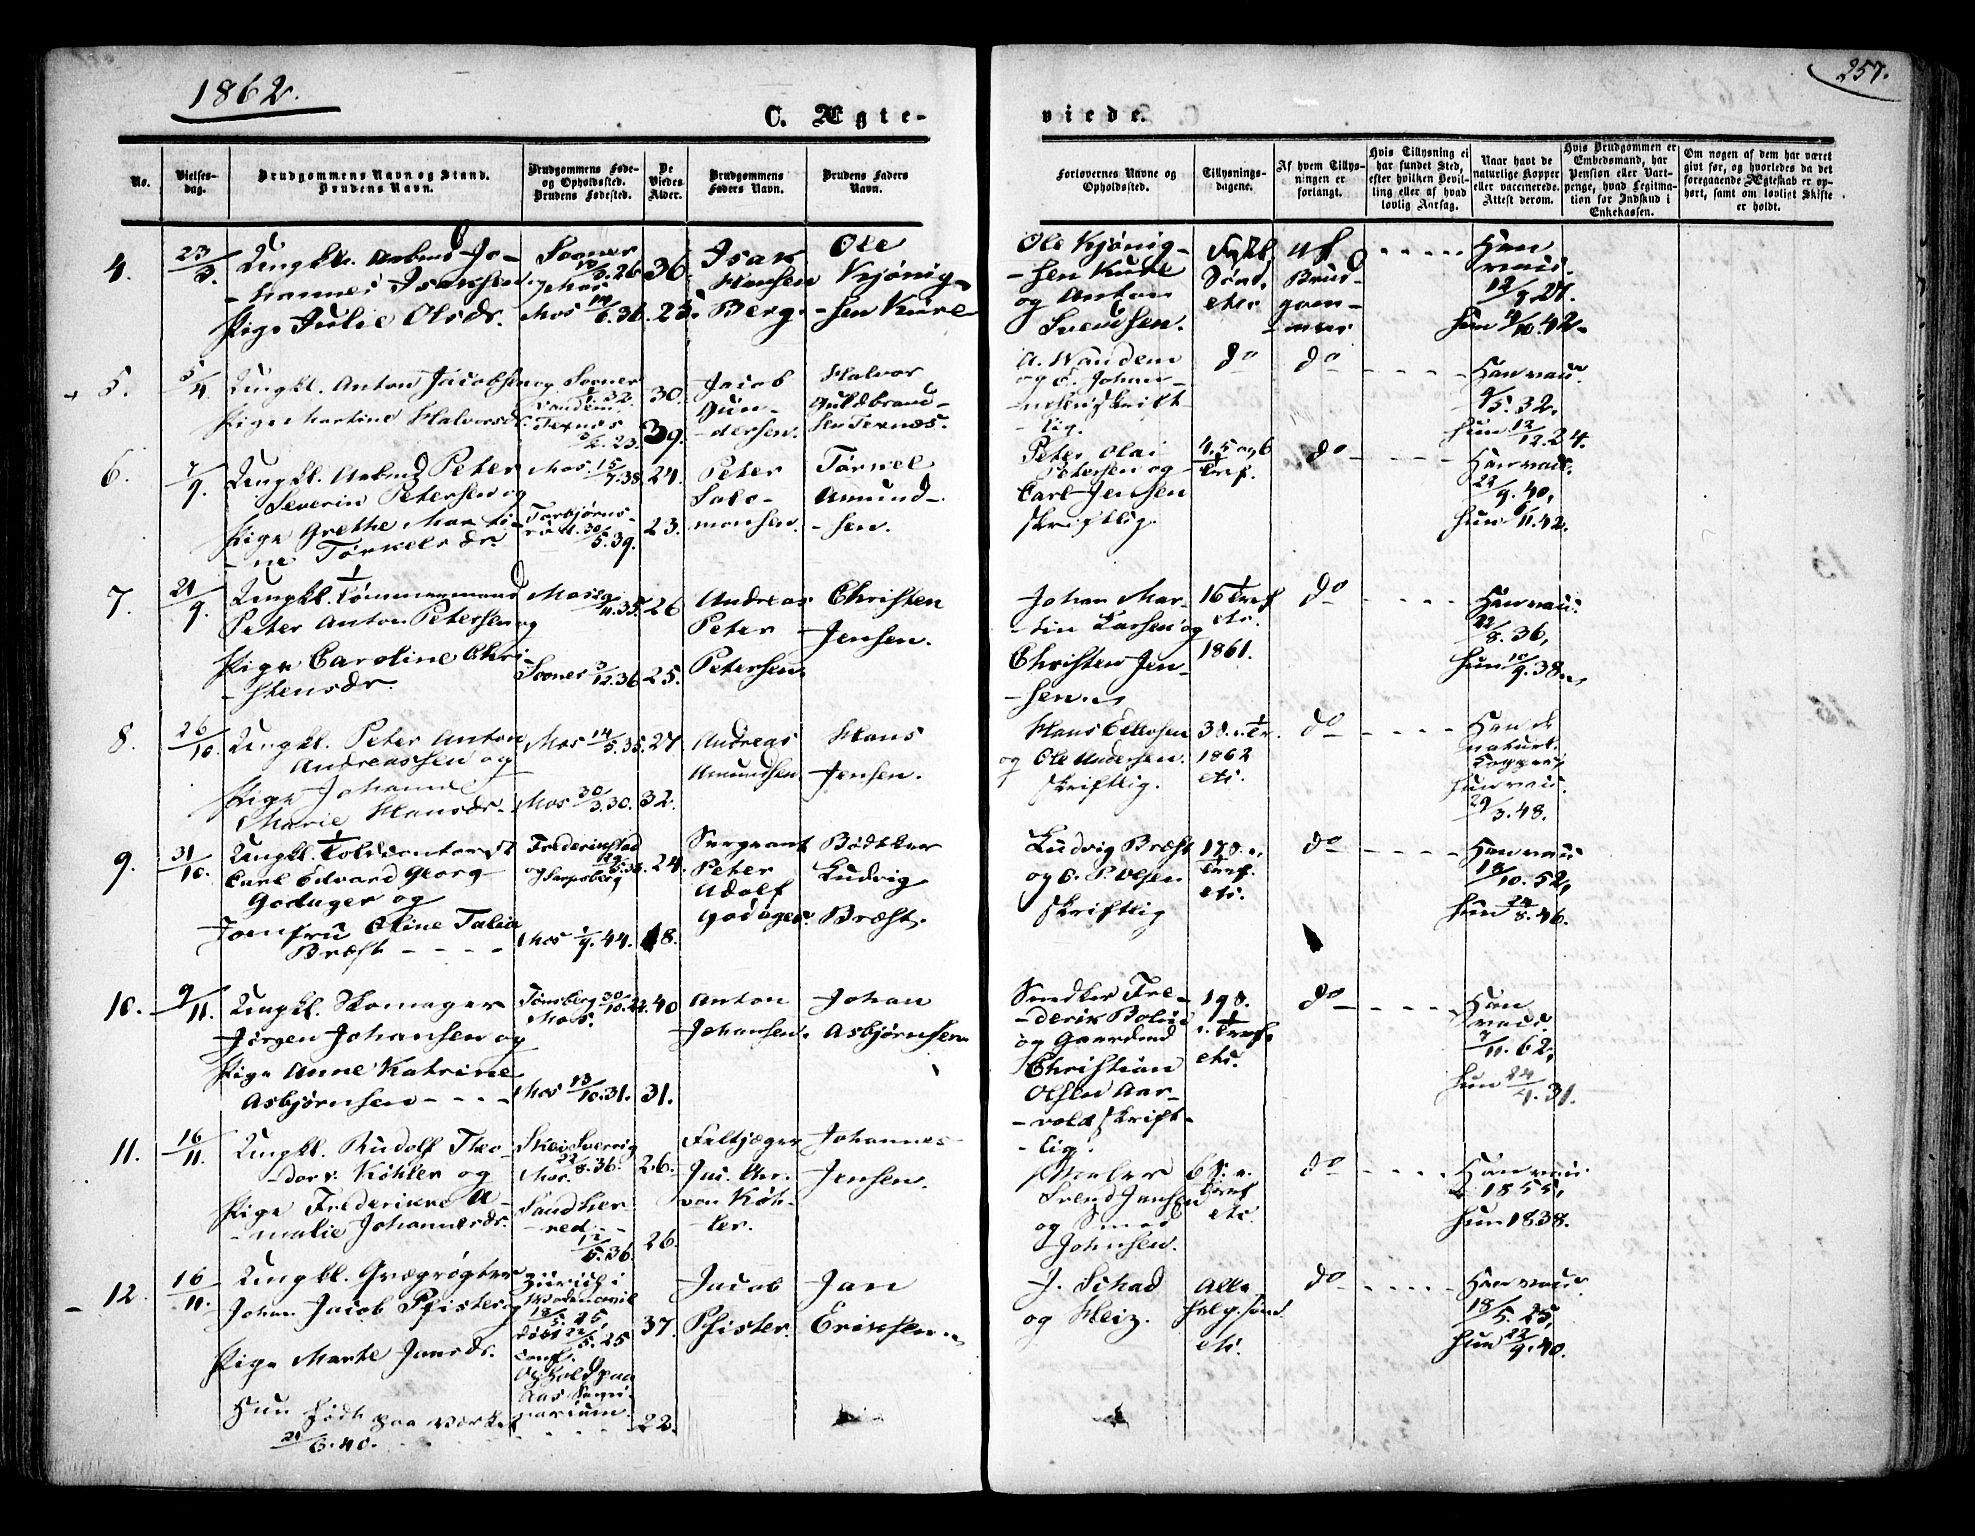 1862.
257.
C. Ægte-
viede.
No.
Vielses-
dag.
Brudgommens Navn og Stand.
Brudens Navn.
Brudgommens Føde-
og Opholdssted.
Brudens Fødested.
De
Viedes
Alder.
Brudgommens
Faders Navn.
Brudens Faders
Navn.
Forlovernes Navne og
Opholdssted.
Tillysnings-
dagene.
Af hvem Tillys-
ningen er
forlangt.
Hvis Tillysning ei
har fundet Sted,
efter hvilken Bevil-
ling eller af hvad
lovlig Aarsag.
Naar havt de
naturlige Kopper
eller vaccinerede.
Attest derom.
Hvis Brudgommen er
Embedsmand, har
Pension eller Vart-
penge, hvad Legitima-
tion for Indskud i
Enkekassen.
Om nogen af dem har været
givt før, og hvorledes da det
foregaaende Ægteskab er op-
hørt, samt om lovligt Skifte
er holdt.
4.
23/3.
Ungkl. Arbmd Jo-
-hannes Isaksen
Pige Julie Olsdr.
Sooner
Mos
36.
Isak
Hansen
Berg.
Ole
Kjönig-
-sen Kure
Ole Kjönig-
-sen Kure
og Anton
Svendsen.
af
Brud-
gom-
-men
Han
vacc.
12/9.27.
hun 4/10.42.
5.
5/4
Ungkl. Anton Jacobsen og
Pige Martine Halvorsdr.
Sooner
Texnæs
30.
39.
Jacob
Gun-
-dersen.
Halvor
Guldbrand-
sen Texnæs.
A. Wandem
og E. Johan-
-nesen skrift-
-lig.
do
do
Han vacc.
9/5.32.
hun 12/12.24.
6.
7/9.
Ungkl. Arbmd Peter
Severin Petersen og
Pige Grethe Marti-
-ne Tørkelsdr.
Mos. 15/7.38.
Torbjørns-
rød. 30/5.39.
24.
23.
Peter
Salo-
monsen.
Tørkel
Amund-
-sen.
Peter Olai
Petersen og
Carl Jensen
skriftlig.
4, 5 og 6
Tref.
do
Han vacc.
23/9.40,
hun 6/11.42.
7.
21/9.
Ungkl. Tømmermand
Peter Anton Petersen og
Pige Caroline Chri-
-stensdr.
Mos 29/11.35.
Sooner 3/12.36
26
25.
Andreas
Peter
Petersen.
Christen
Jensen.
Johan Mar-
-tin Larsen og
Christen Jen-
-sen.
16 Tref
etc.
1861.
do
Han vacc.
22/8.36,
hun 10/9.38.
8.
26/10.
Ungkl. Peter Anton
Andreassen og
Pige Johanne
Marie Hansdr.
Mos 14/5.35.
Mos 30/3.30.
27
32.
Andreas
Amundsen.
Hans
Jensen.
Hans Ellevsen
og Ole Andersen.
skriftlig.
1862
etc.
do
Han de
naturl.
kopper,
hun vacc.
29/3.48.
9.
31/10.
Ungkl. Toldkontorist
Carl Edvard Georg
Godager og
Jomfru Oline Talia
Bræst
Frederikstad
og Sarpsborg
Mos 1/9.44.
24.
18.
Sergeant
Peter
Adolf
Godager.
Bødtker
Ludvig
Bræst.
Ludvig Bræst
og C. P. Olsen
skriftlig
Tref.
etc.
do
Han vacc
18/10.52,
hun 24/8.46.
10.
9/11.
Ungkl. Skomager
Jörgen Johansen og
Pige Anne Katrine
Asbjørnsen
Tønsberg 30/10.22.
Mos.
Mos 13/10.31.
40
31.
Anton
Johansen.
Johan
Asbjørnsen
Snedker Fre-
-derik Bolin
og Gaardmd
Christian
Olsen Aar-
-vold skrift-
-lig.
Tref.
etc.
do
Han
vacc.
7/11.62,
hun 24/4.31.
11.
16/11.
Ungkl. Rudolf Theo-
-dor v. Köhler og
Pige Frederikke A-
-malie Johannesdr.
Mos.
Sandher-
-red
12/5.36.
26.
26.
Feltjæger
Joc. Chr.
von Köh-
-ler.
Johannes
Jensen.
Maler
Svend Jensen
og Smed
Johnsen.
Tref
etc.
do
Han vacc.
1855,
hun 1838.
12.
16/11.
Ungkl. Grægrøgter
Johan Jacob Pfister og
Pige Marte Jansdr.
Hun født paa Værket
21/6.40.
Zürich i
18/5.25,
døbt 22/5.25
conf.
Ophold paa
Aas Semi-
narium.
37.
22.
Jacob
Pfister.
Jan
Eriksen.
J. Schad
og Heiz.
Alle
helg. sønd.
etc.
do
Han vacc.
18/5.25,
hun 22/9.40.